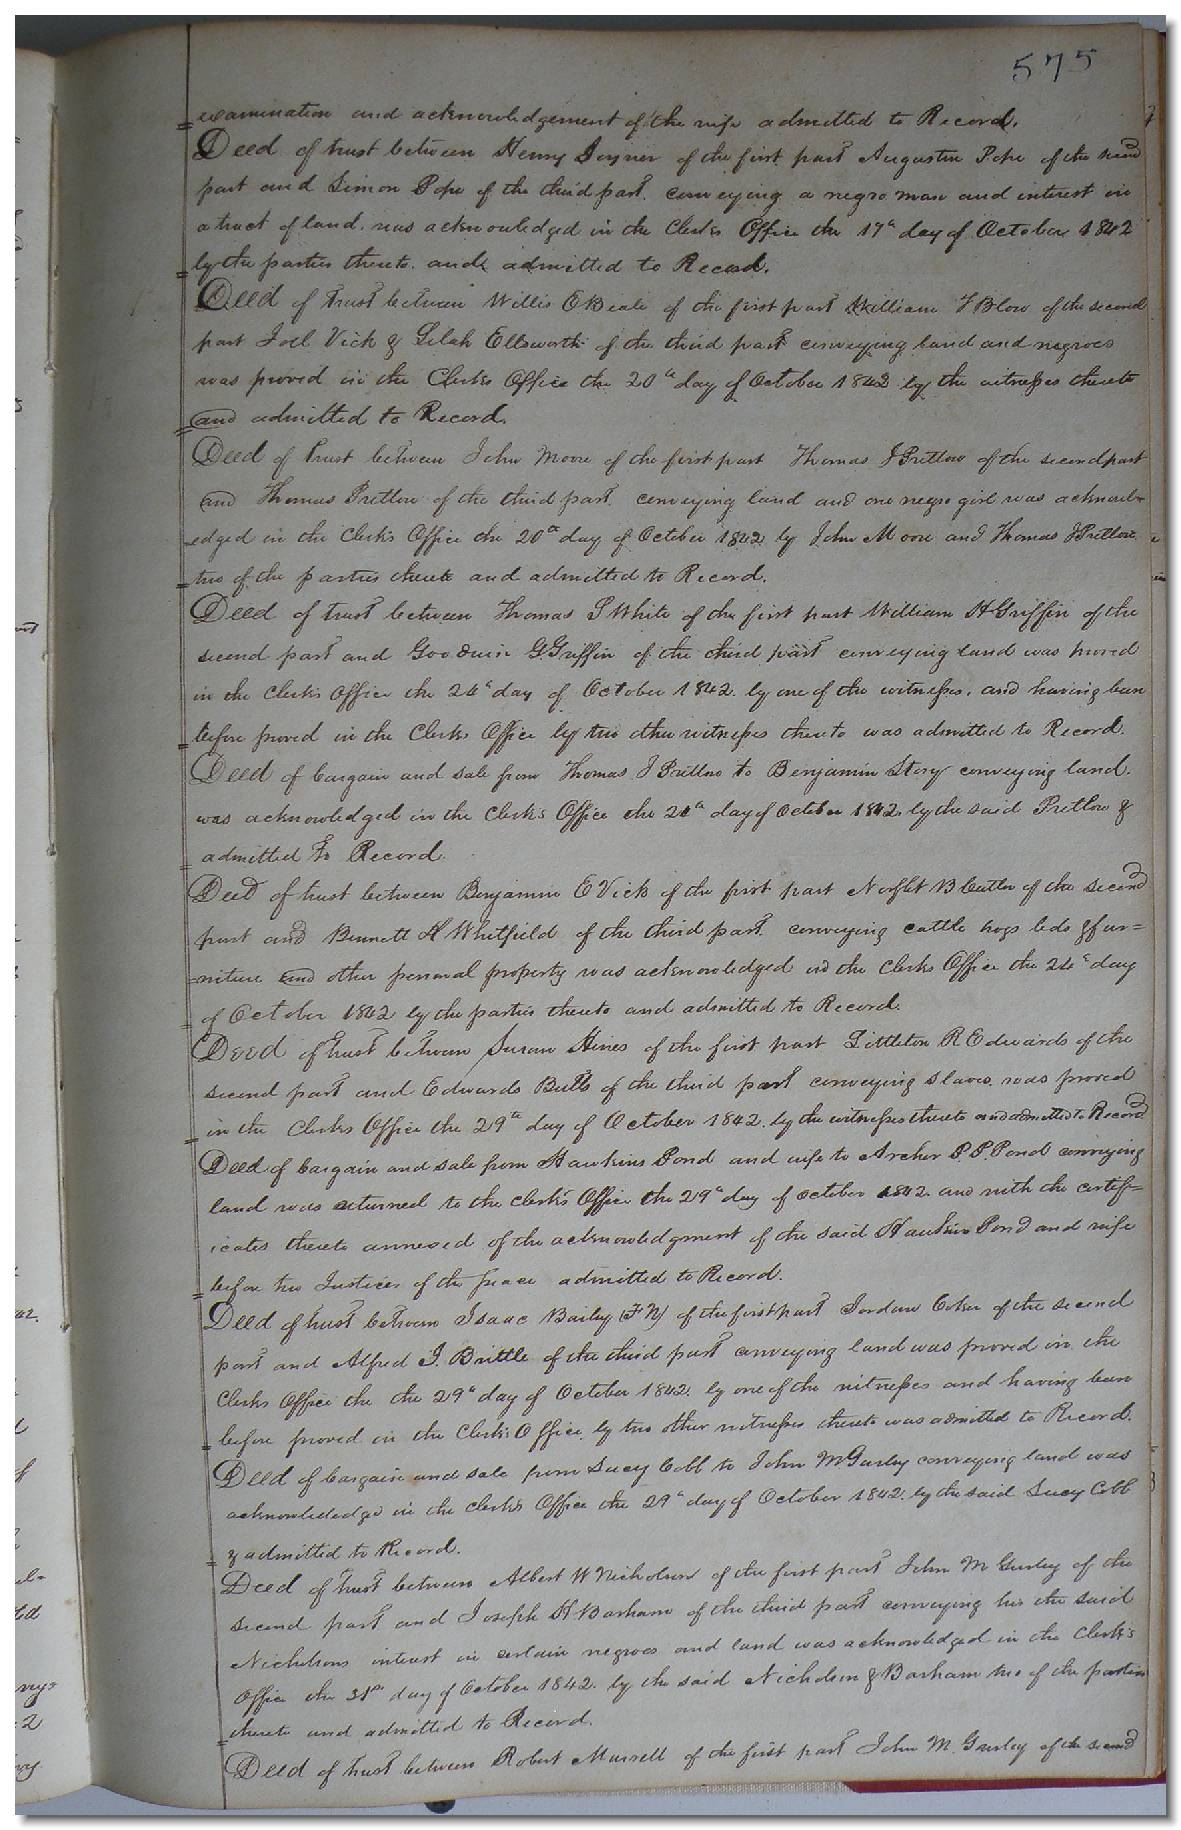 575
examination and acknowledgement of the wife admitted to Record.
Deed of trust between Henry Joyner of the first part Augustin Pope of the second
part and Simon Pope of the third part. conveying a negro man and interest in
a tract of land. was acknowledged in the Clerks Office the 17th day of October 1842
by the parties thereto. and admitted to Record.
Deed of Trust between Willis E Beale of the first part William F Blow of the second
part Joel Vick & Selah Ellsworth of the third part conveying land and negroes
was proved in the Clerks Office the 20th day of October 1842 by the witnesses thereto
and admitted to Record.
Deed of Trust between John Moore of the first part Thomas J Pretlow of the second part
and Thomas Pretlow of the third part. conveying land and one negro girl was acknowl-
edged in the Clerks Office the 20th day of October 1842 by John Moore and Thomas J Pretlow
two of the parties thereto and admitted to Record.
Deed of trust between Thomas P White of the first part William H Griffin of the
second part and Goodwin G. Griffin of the third part conveying land was proved
in the Clerks Office the 24th day of October 1842. by one of the witnesses. and having been
before proved in the Clerks Office by two other witnesses thereto was admitted to Record.
Deed of bargain and sale from Thomas J Pretlow to Benjamin Story conveying land.
was acknowledged in the Clerk's Office the day of October 1842 by the said Pretlow &
admitted to Record.
Deed of trust between Benjamin E Vick of the first part Norflet B Cutler of the second
part and Bennett H Whitfield of the third part. conveying cattle hogs beds & fur=
=niture and other personal property was acknowledged in the Clerks Office the 24th day
of October 1842 by the parties thereto and admitted to Record.
Deed of trust between Susan Hines of the first part Littleton R Edwards of the
second part and Edwards Butts of the third part conveying slaves. was proved
in the Clerks Office the 29th day of October 1842. by the witnesses thereto and admitted to Record
Deed of bargain and sale from Hawkins Pond and wife to Archer P. P. Pond conveying
land was returned to the Clerk's Office the 29th day of October 1842. and with the certif=
icates thereto annexed of the acknowledgment of the said Hawkins Pond and wife
before two Justices of the peace admitted to Record.
Deed of trust between Isaac Bailey (F N) of the first part Jordan Coker of the second
part and Alfred J. Brittle of the third part conveying land was proved in the
Clerks Office the the 29th day of October 1842. by one of the witnesses and having been
before proved in the Clerk's Office by two other witnesses thereto was admitted to Record.
Deed of bargain and sale from Lucy Cobb to John M Gurley conveying land was
acknowlededge in the Clerk's Office the 29th day of October 1842. by the said Lucy Cobb
& admitted to Record.
Deed of trust between Albert W Nicholson of the first part John M Gurley of the
second part and Joseph H Barham of the third part conveying his the said
Nicholsons interest in certain negroes and land was acknowledged in the Clerk's
Office the 31st day of October 1842. by the said Nicholson & Barham two of the parties
thereto and admitted to Record.
Deed of trust between Robert Murrell of the first part John M. Gurley of the second